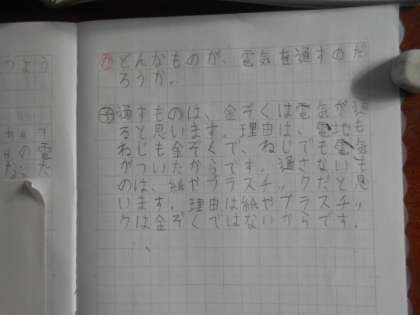 どんなものが、電気を通すのだ
ろうか。
通すものは、金ぞくは電気が通
ると思います。理由は、電池も
ねじも金ぞくで、ねじでも電気
がついたからです。通さないも
のは、紙やプラスチックだと思
います。理由は紙やプラスチッ
クは金ぞくではないからです。